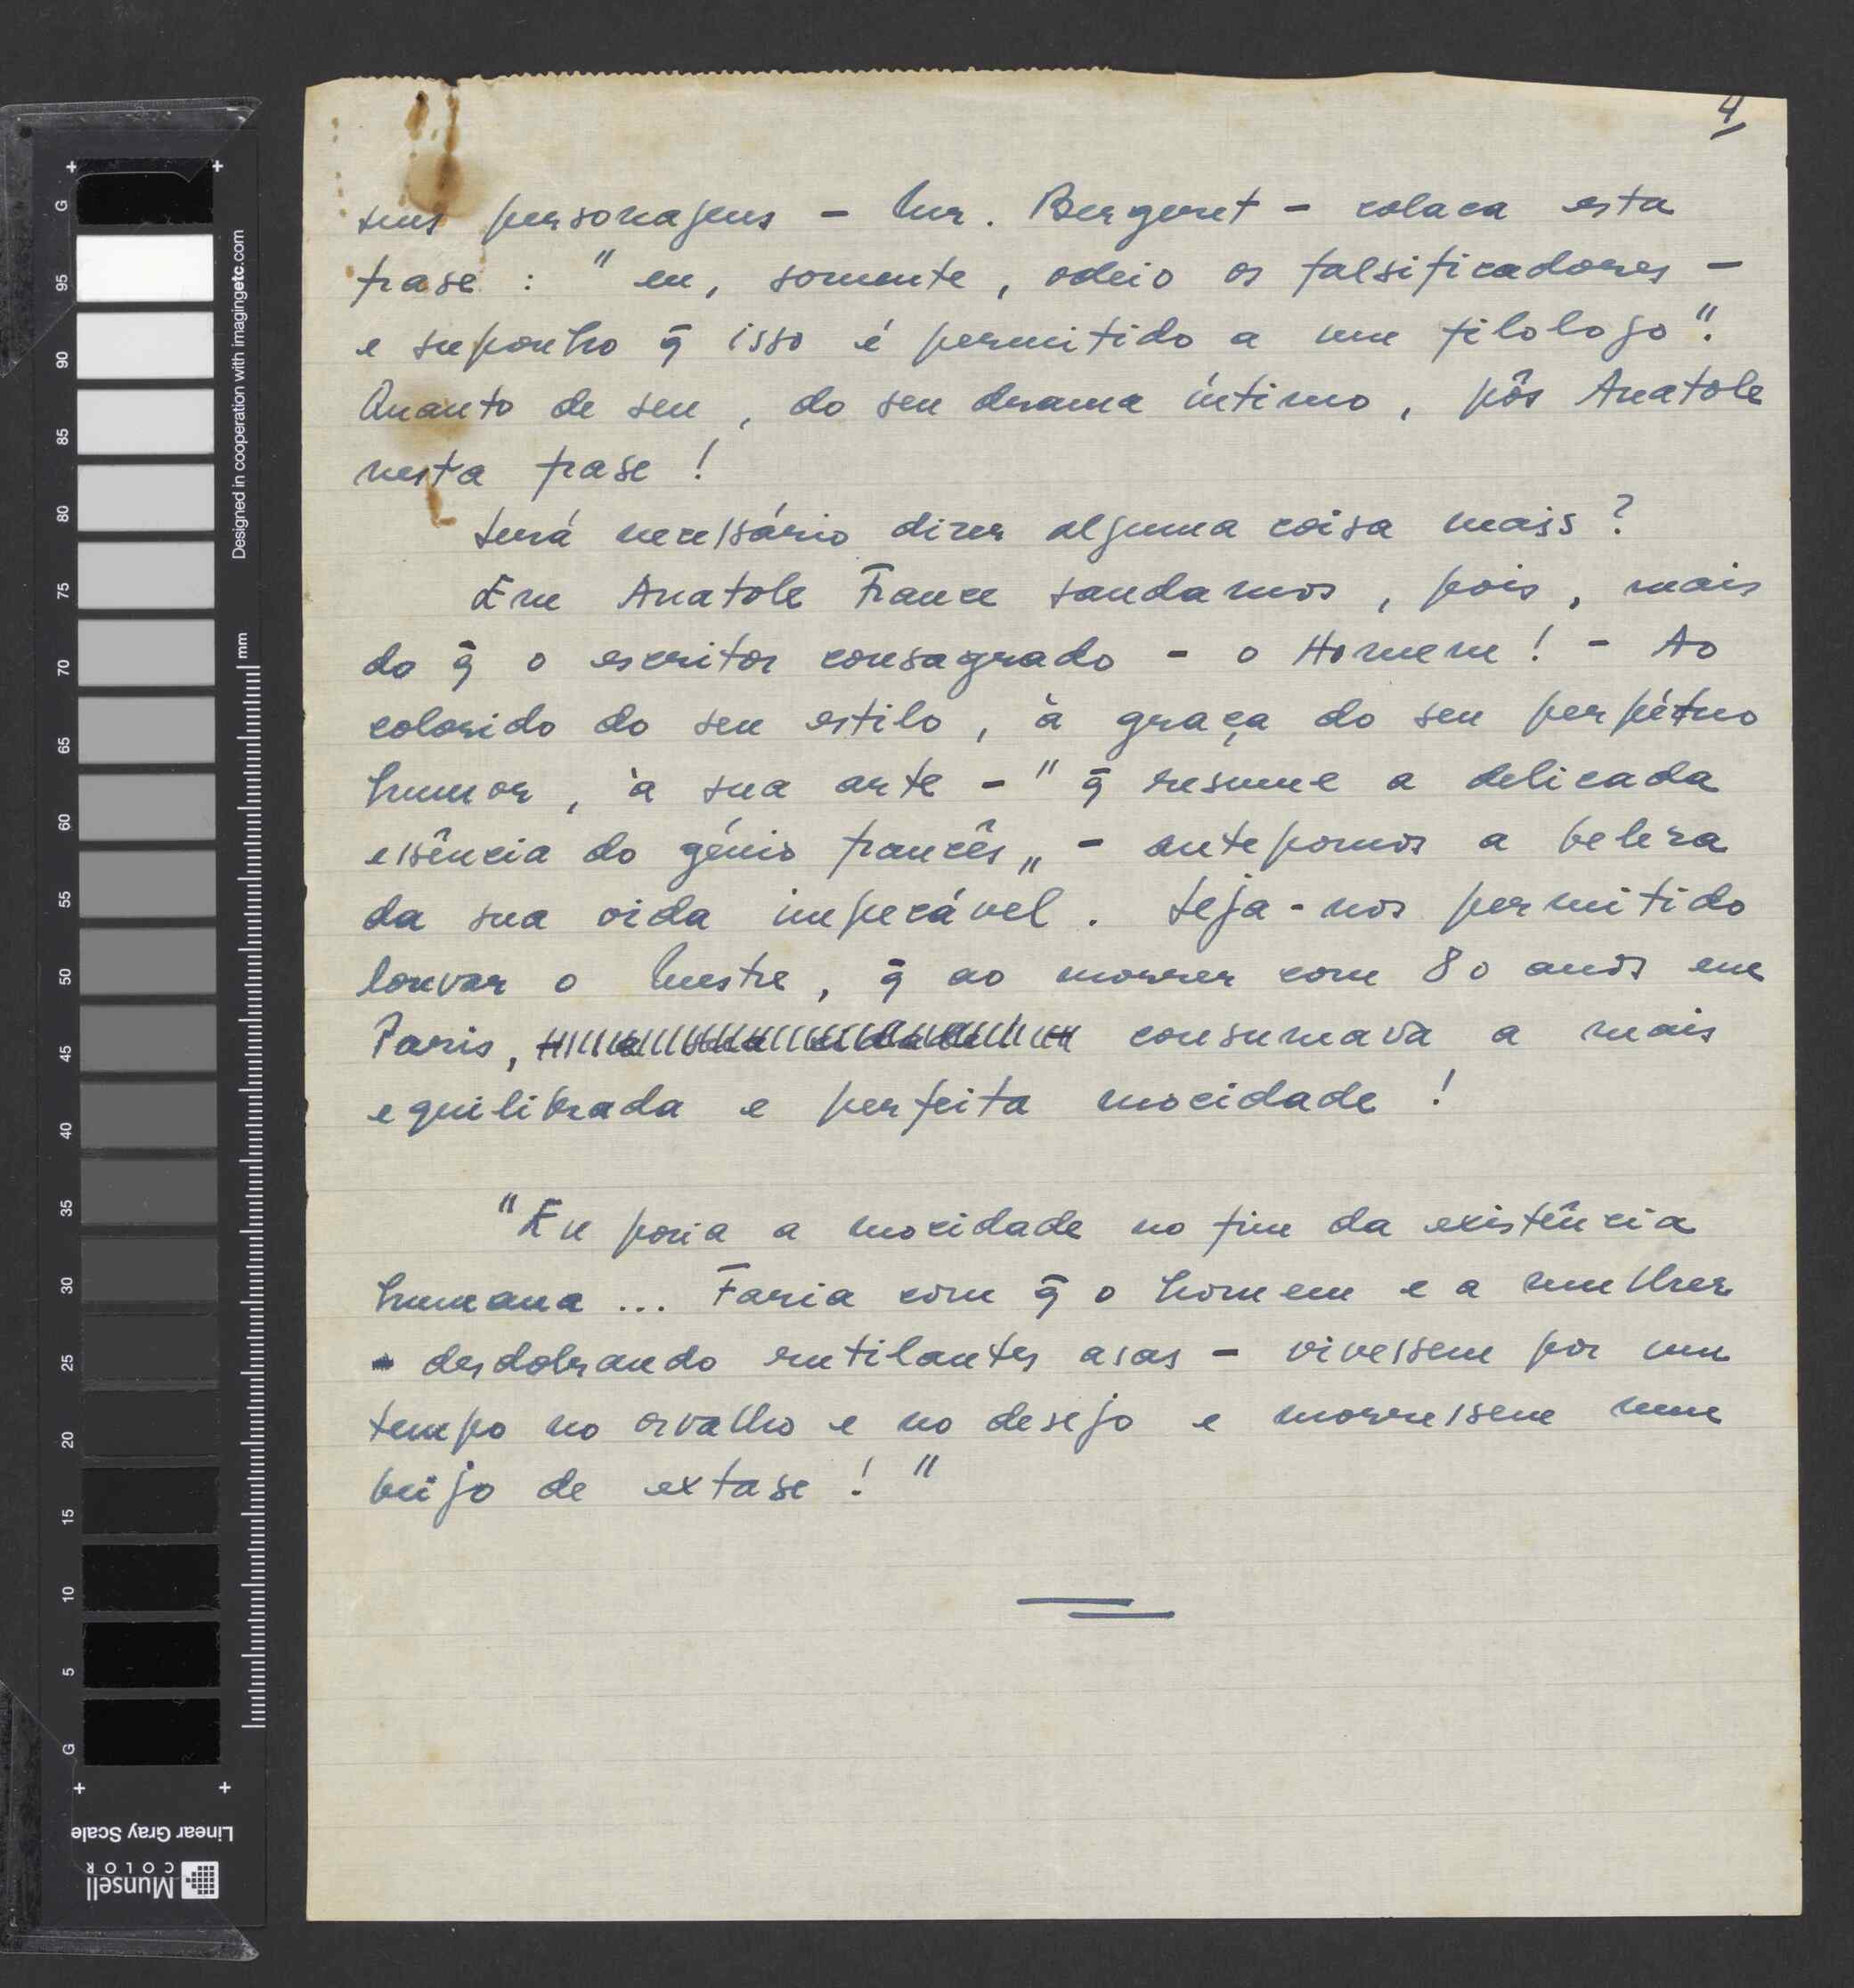 4
seus personagens - Mr. Bergeret - coloca esta
frase : " eu, somente, odeio os falsificadores -
e suponho q̄ isso é permitido a um filologo".
Quanto de seu, do seu drama íntimo, pôs Anatole
nesta frase !
Será necessário dizer alguma coisa mais ?
Em Anatole France saudamos, pois, mais
do q̄ o escritor consagrado - o Homem ! - Ao
colorido do seu estilo, à graça do seu perpétuo
humor, à sua arte - " q̄ resume a delicada
essência do génio francês „ - antepomos a beleza
da sua vida impecável. Seja-nos permitido
louvar o Mestre, q̄ ao morrer com 80 anos em
Paris, consumava a mais
equilibrada e perfeita mocidade !
"Eu poria a mocidade no fim da existência
humana ... Faria com q̄ o homem e a mulher
- desdobrando rutilantes asas - vivessem por um
tempo no orvalho e no desejo e morressem num
beijo de extase ! "
G
95
90
85
80
75
70
65
60
55
50
45
40
35
30
25
20
15
10
5
G
mm
Designed in cooperation with imagingetc.com
Linear Gray Scale
Munsell
COLOR